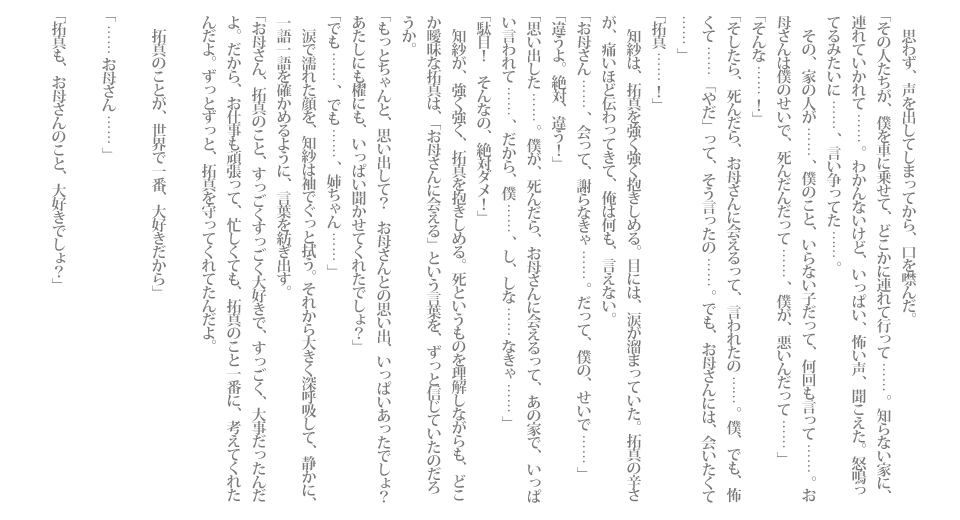 思わず、声を出してしまってから、口を噤んだ。
「その人たちが、僕を車に乗せて、どこかに連れて行って……。知らない家に、
連れていかれて……。わかんないけど、いっぱい、怖い声、聞こえた。怒鳴っ
てるみたいに……、言い争ってた……。
その、家の人が……、僕のこと、いらない子だって、何回も言って……。お
母さんは僕のせいで、死んだんだって……、僕が、悪いんだって……」
「そんな……！」
「そしたら、死んだら、お母さんに会えるって、言われたの……。僕、でも、怖
くて……「やだ」って、そう言ったの……。でも、お母さんには、会いたくて
……」
「拓真……！」
知紗は、拓真を強く強く抱きしめる。目には、涙が溜まっていた。拓真の辛さ
が、痛いほど伝わってきて、俺は何も、言えない。
「お母さん……、会って、謝らなきゃ……。だって、僕の、せいで……」
「違うよ。絶対、違う！」
「思い出した……。僕が、死んだら、お母さんに会えるって、あの家で、いっぱ
い言われて……、だから、僕……、し、しな……なきゃ……」
「駄目！　そんなの、絶対ダメ！」
知紗が、強く強く、拓真を抱きしめる。死というものを理解しながらも、どこ
か曖昧な拓真は、「お母さんに会える」という言葉を、ずっと信じていたのだろ
うか。
「もっとちゃんと、思い出して？　お母さんとの思い出、いっぱいあったでしょ？
あたしにも櫂にも、いっぱい聞かせてくれたでしょ？」
「でも……、でも……、姉ちゃん……」
涙で濡れた顔を、知紗は袖でぐっと拭う。それから大きく深呼吸して、静かに、
一語一語を確かめるように、言葉を紡ぎ出す。
「お母さん、拓真のこと、すっごくすっごく大好きで、すっごく、大事だったんだ
よ。だから、お仕事も頑張って、忙しくても、拓真のこと一番に、考えてくれた
んだよ。ずっとずっと、拓真を守ってくれてたんだよ。
拓真のことが、世界で一番、大好きだから」
「……お母さん……」
「拓真も、お母さんのこと、大好きでしょ？」